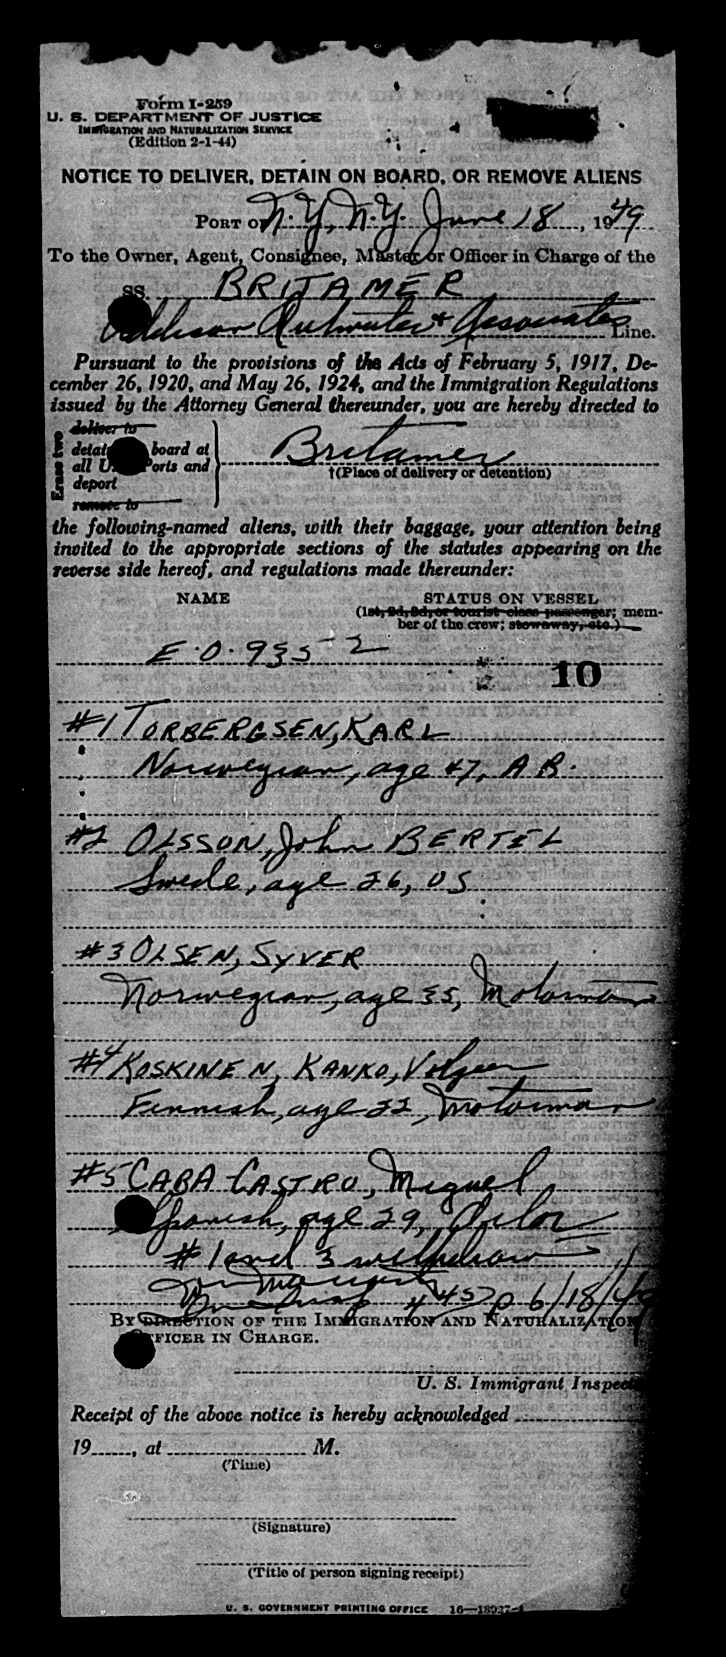 Form I-259
U. S. DEPARTMENT OF JUSTICE
IMMIGRATION AND NATURALIZATION SERVICE
(Edition 2-1-44)
NOTICE TO DELIVER, DETAIN ON BOARD, OR REMOVE ALIENS
PORT OF N.Y., N.Y. June 18, 1949
To the Owner, Agent, Consignee, Master or Officer in Charge of the
SS BRITAMER
Addison Outwater & Associates Line.
Pursuant to the provisions of the Acts of February 5, 1917, De-
cember 26, 1920, and May 26, 1924, and the Immigration Regulations
issued by the Attorney General thereunder, you are hereby directed to
Erase two
deliver to
detain board at
all U. orts and
deport
remove to
Britamer
†(Place of delivery or detention)
the following-named aliens, with their baggage, your attention being
invited to the appropriate sections of the statutes appearing on the
reverse side hereof, and regulations made thereunder:
NAME STATUS ON VESSEL
(1st, 2d, 3d, or tourist class passenger; mem-
ber of the crew; stowaway, etc.)
E.O. 9352
10
#1 TORBERGSEN, KARL
Norwegian, age 47, AB.
#2 OLSSON, John BERTEL
Swede, age 26, OS
#3 OLSEN, SYVER
Norwegian, age 35, Motorman
#4 KOSKINEN, KANKO,
Finnish, age 22, Motorman
#5 CABA CASTRO, Miguel
Spanish, age 29, Oiler
#1 and 3 withdrawn
445 p 6/18/49
BY DIRECTION OF THE IMMIGRATION AND NATURALIZATION
OFFICER IN CHARGE.
U. S. Immigrant Inspec
Receipt of the above notice is hereby acknowledged
19, at M.
(Time)
(Signature)
(Title of person signing receipt)
U. S. GOVERNMENT PRINTING OFFICE 16—18927-1